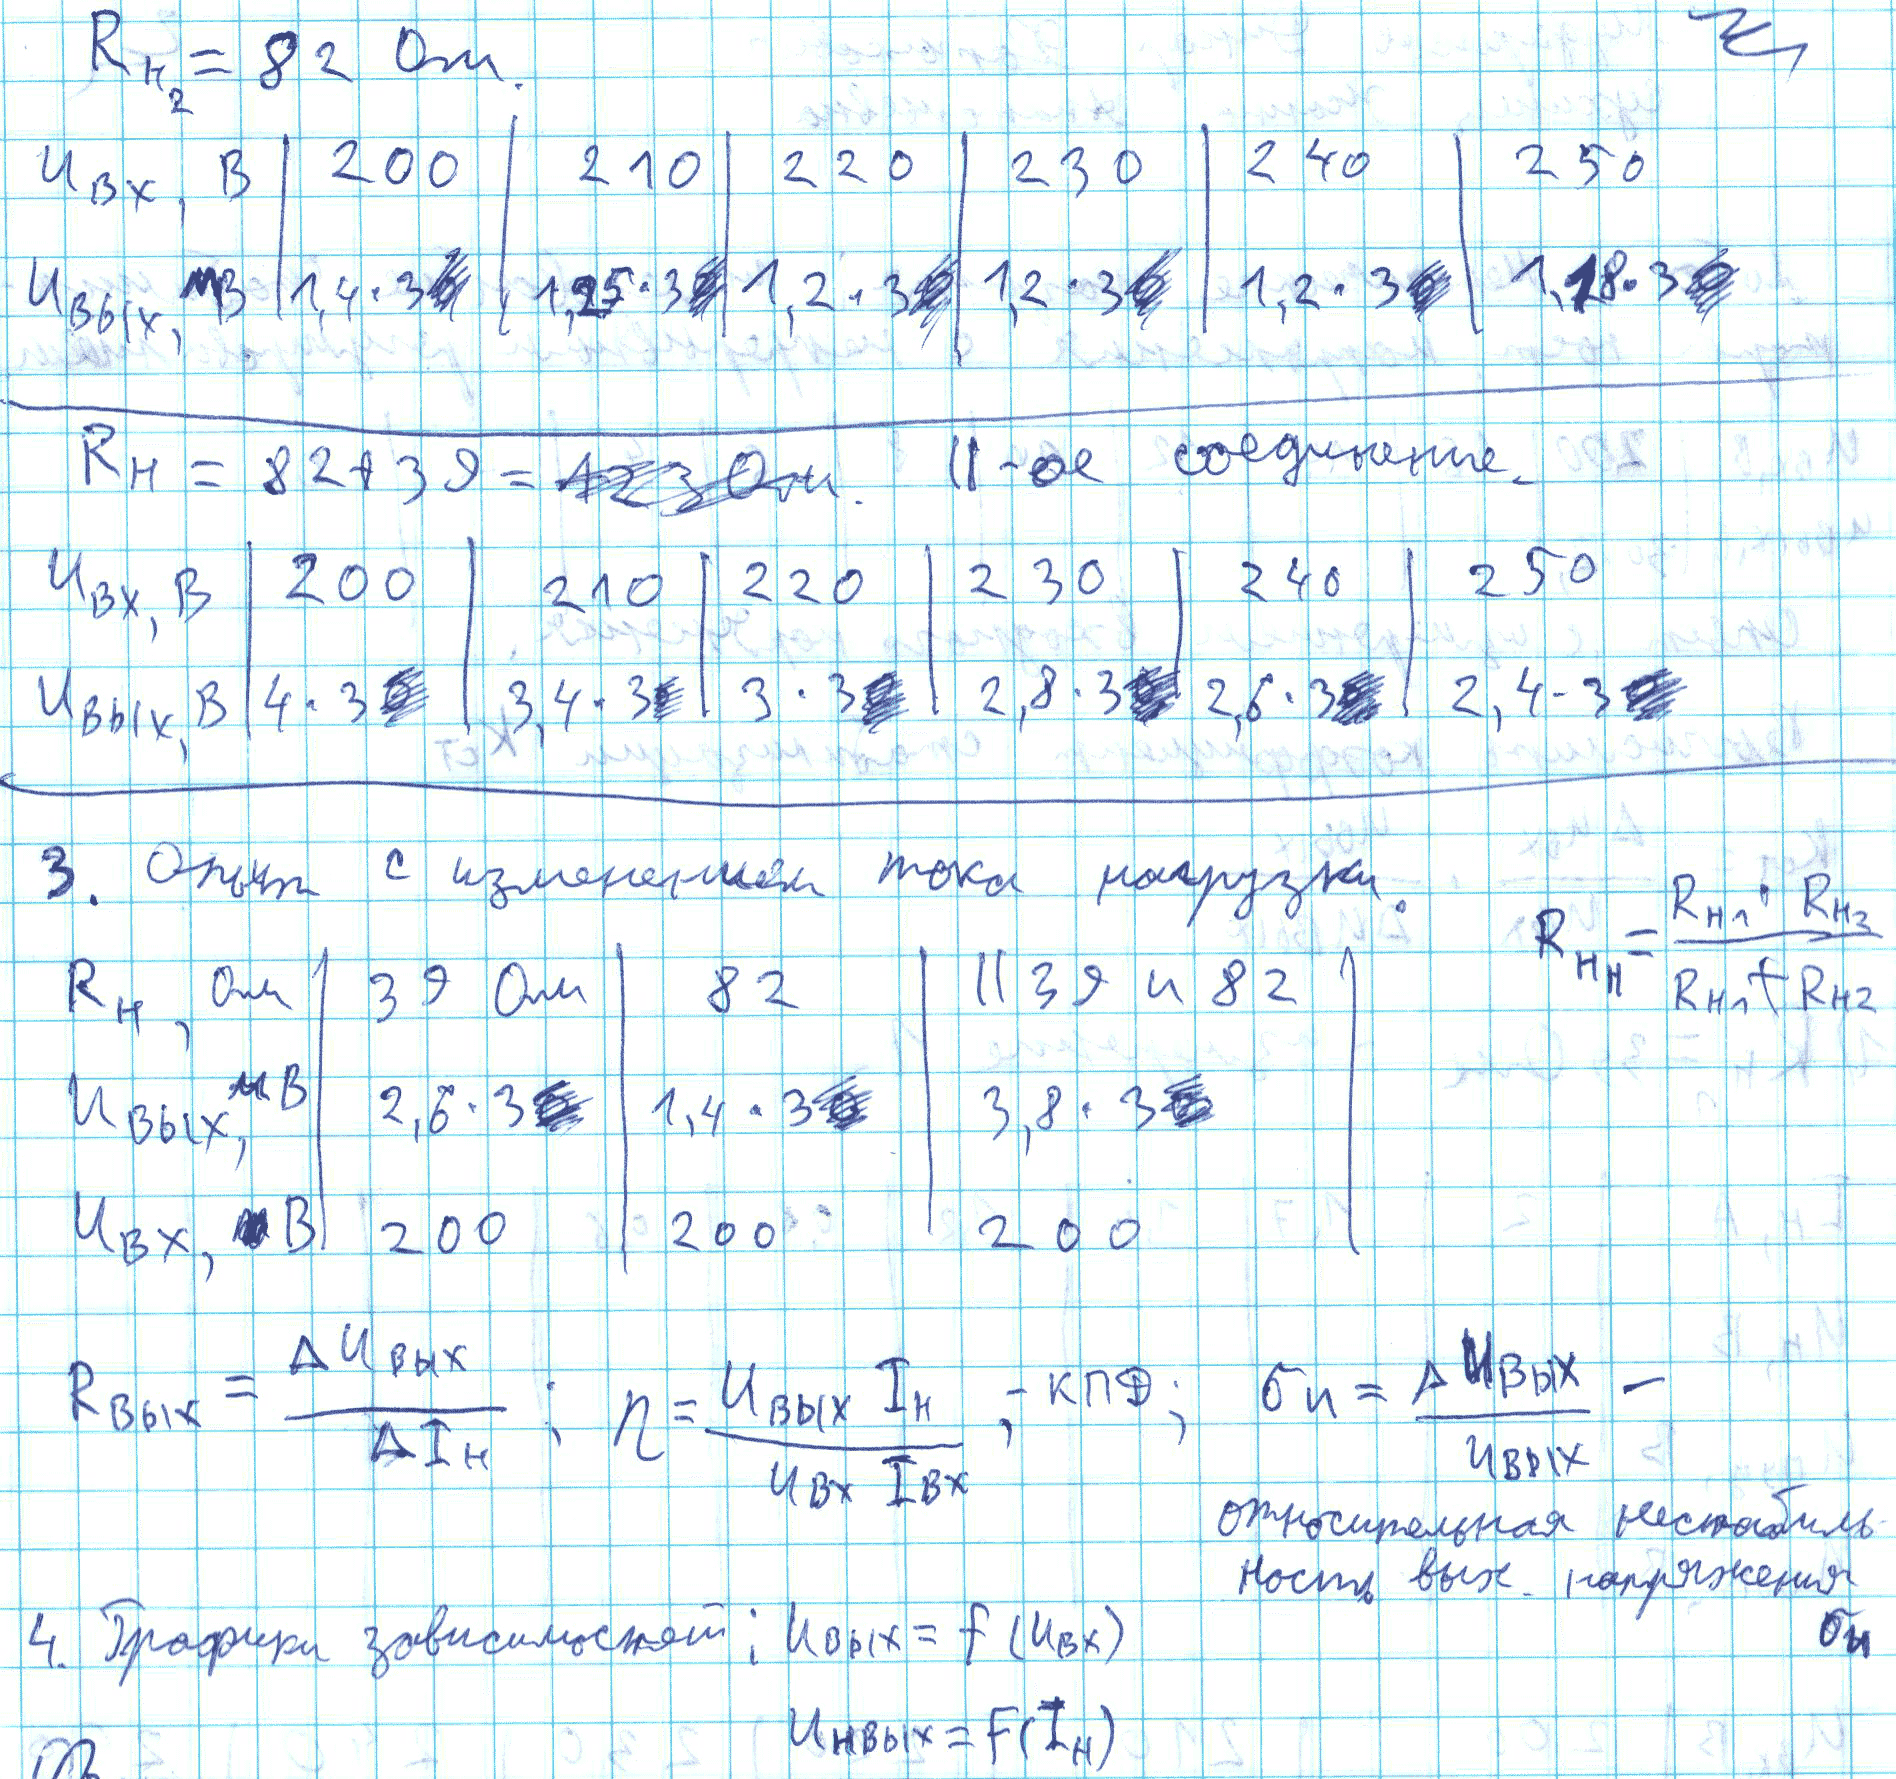 Rн2 = 82 Ом.
Uвх, В | 200 | 210 | 220 | 230 | 240 | 250
Uвых, мВ | 1,4·3 | 1,25·3 | 1,2·3 | 1,2·3 | 1,2·3 | 1,18·3
Rн = 82+39 = 123 Ом. ||-ое соединение.
Uвх, В | 200 | 210 | 220 | 230 | 240 | 250
Uвых, В | 4·3 | 3,4·3 | 3·3 | 2,8·3 | 2,6·3 | 2,4·3
3. Опыт с изменением тока нагрузки.
Rнн = Rн1 · Rн3 / Rн1 + Rн2
Rн, Ом | 39 Ом | 82 | || 39 и 82 |
Uвых, мВ | 2,6·3 | 1,4·3 | 3,8·3
Uвх, В | 200 | 200 | 200
Rвых = ΔUвых / ΔIн ; η = Uвых Iн / Uвх Iвх , - КПД; би = ΔUвых / Uвых –
относительная нестабиль-
ность вых. напряжения
би
4. Графики зависимостей; Uвых = f (Uвх)
Uнвых = F(Iн)